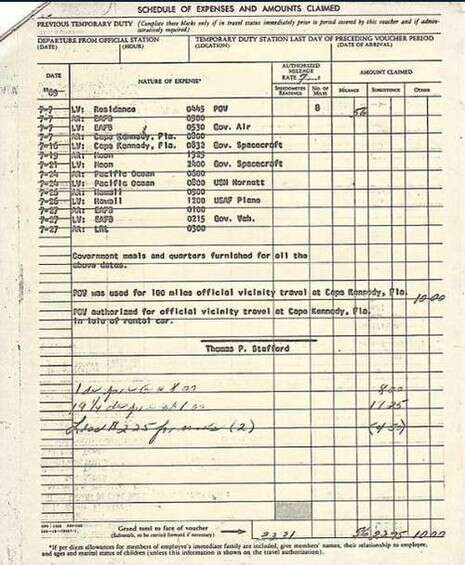 SCHEDULE OF EXPENSES AND AMOUNTS CLAIMED
PREVIOUS TEMPORARY DUTY (Complete these blocks only if in travel status immediately prior to period covered by this voucher and if administratively required)
DEPARTURE FROM OFFICIAL STATION TEMPORARY DUTY STATION LAST DAY OF PRECEDING VOUCHER PERIOD
(DATE) (HOUR) (LOCATION) (DATE OF ARRIVAL)
DATE NATURE OF EXPENSE* AUTHORIZED MILEAGE RATE 7 AMOUNT CLAIMED
SPEEDOMETER READINGS NO. OF MILES MILEAGE SUBSISTENCE OTHER
1969
7-7 LV: Residence 0445 POV 8 56
7-7 AR: EAFB 0500
7-7 LV: EAFB 0530 Gov. Air
7-7 AR: Cape Kennedy, Fla. 0800
7-16 LV: Cape Kennedy, Fla. 0832 Gov. Spacecraft
7-19 AR: Moon 1325
7-21 LV: Moon 2400 Gov. Spacecraft
7-24 AR: Pacific Ocean 0600
7-24 LV: Pacific Ocean 0800 USN Hornett
7-26 AR: Hawaii 0900
7-26 LV: Hawaii 1200 USAF Plane
7-27 AR: EAFB 0100
7-27 LV: EAFB 0215 Gov. Veh.
7-27 AR: 0300
Government meals and quarters furnished for all the
above dates.
POV was used for 100 miles official vicinity travel at Cape Kennedy, Fla. 10.00
POV authorized for official vicinity travel at Cape Kennedy, Fla.
in lieu of rental car.
Thomas P. Stafford
8.00
19 1/4
Less 2.25 for meals (2) (4.50)
Grand total to face of voucher
(Subtotals, to be carried forward if necessary) 33.31 56 22.75 10.00
*If per diem allowances for members of employee's immediate family are included, give members' names, their relationship to employee,
and ages and marital status of children (unless this information is shown on the travel authorization).